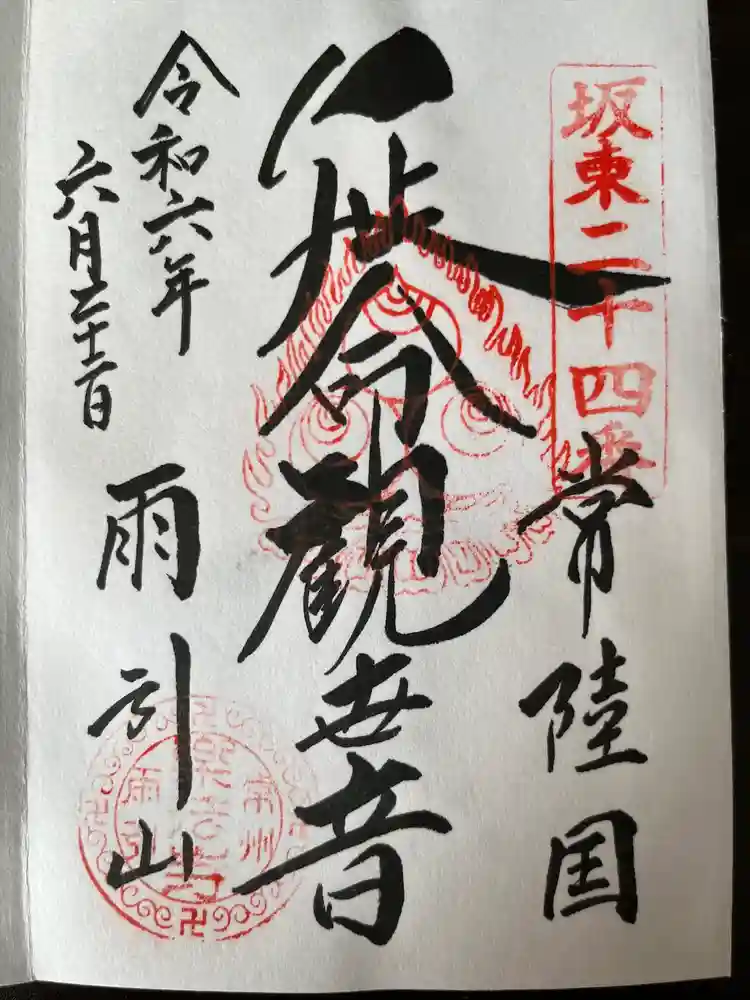 坂東二十四番
常陸国
延命観世音
令和六年
六月二十二日
雨引山
常州
樂法寺
雨引